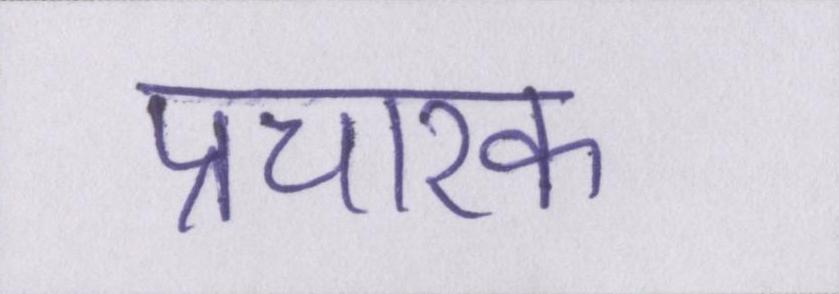 प्रचारक